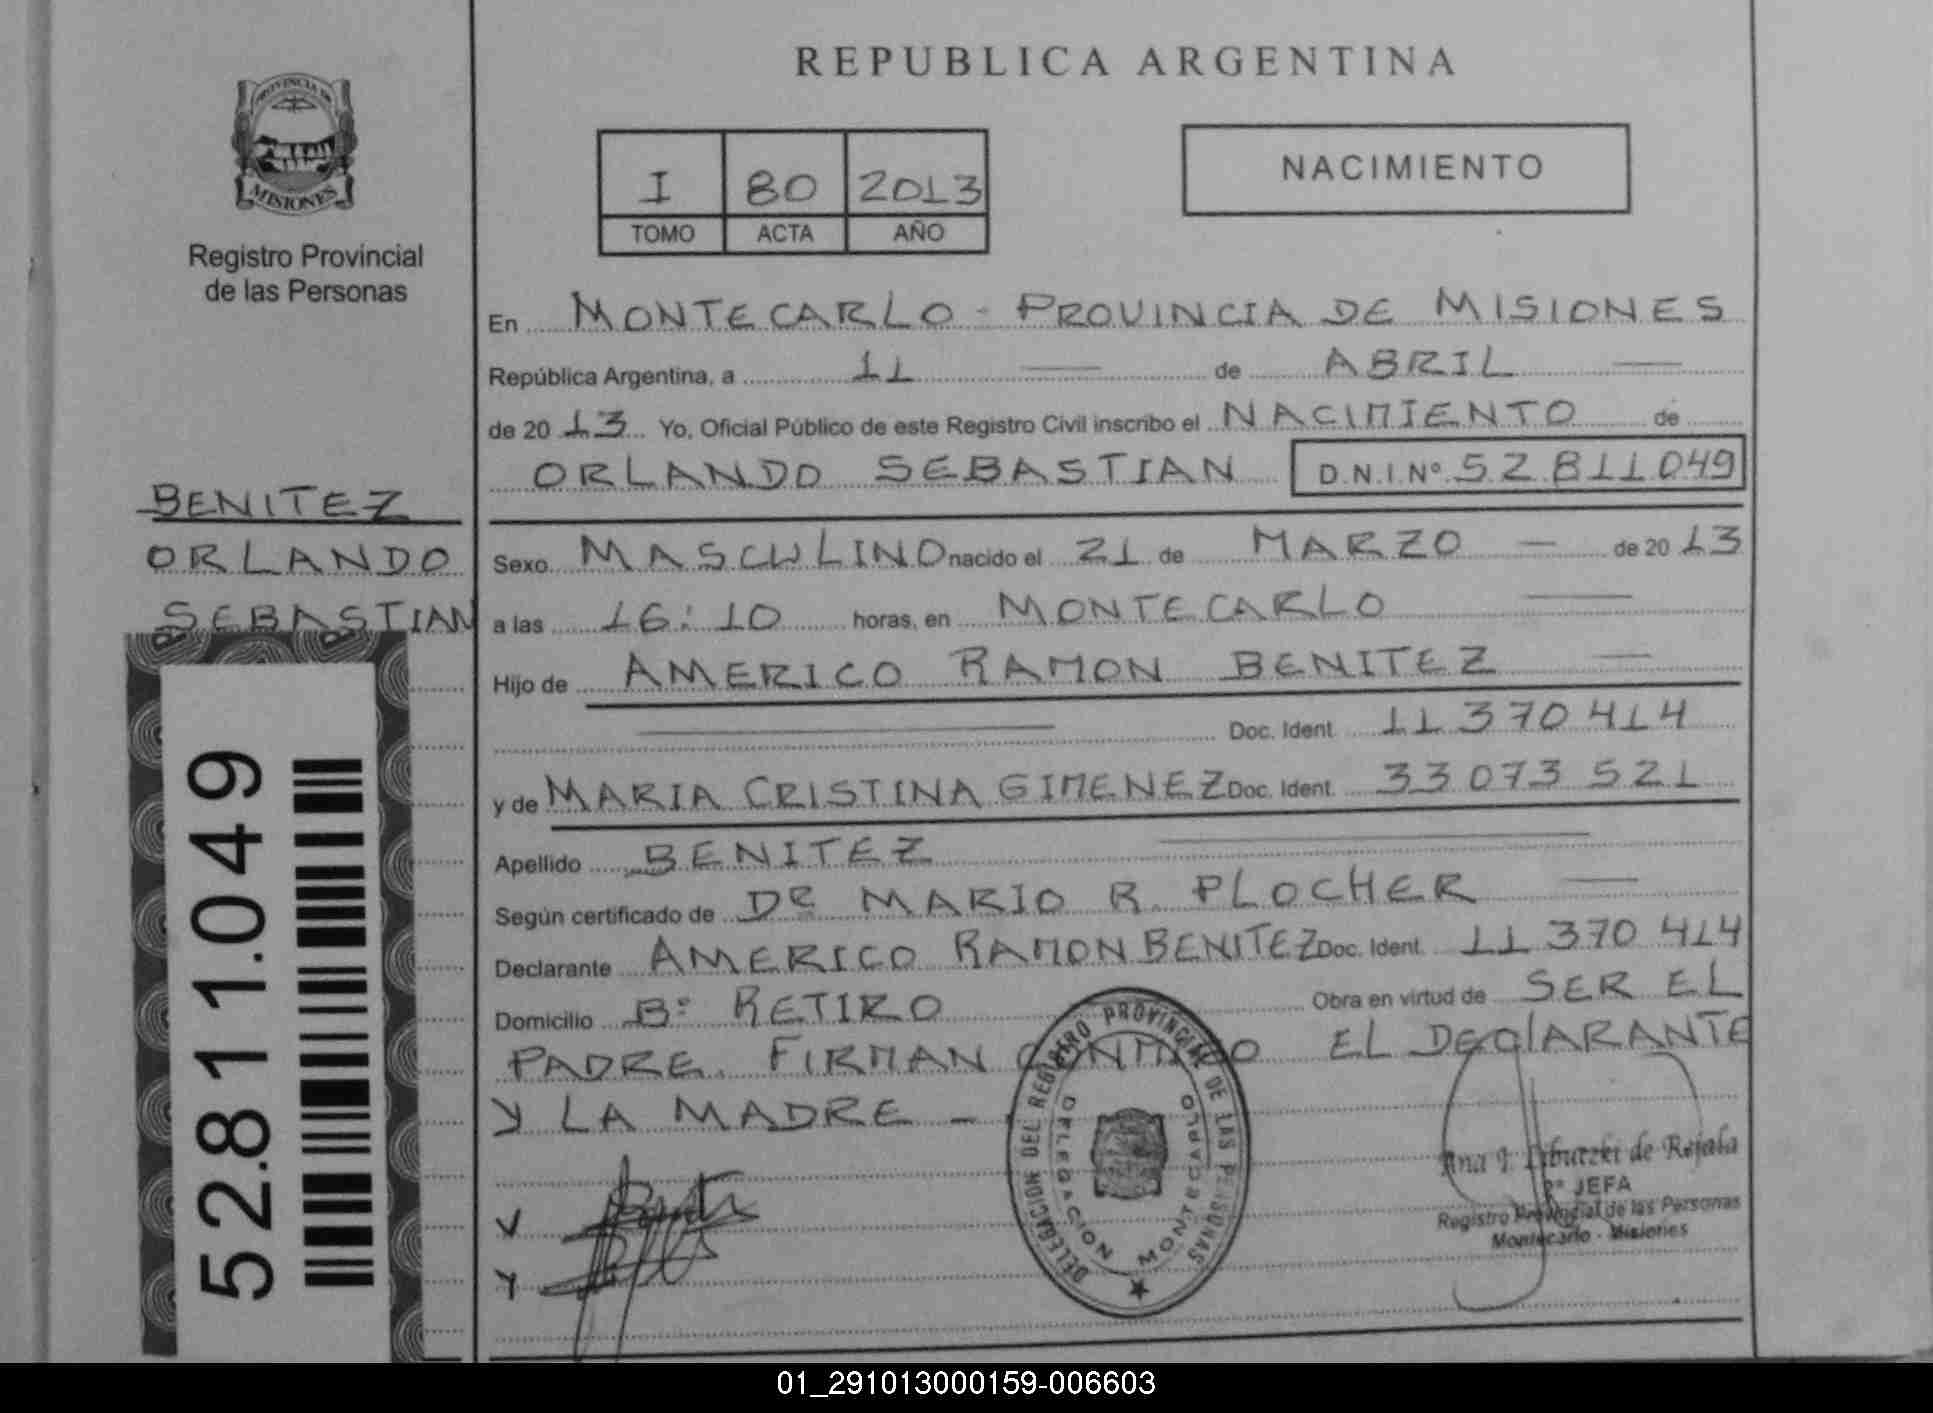 REPUBLICA ARGENTINA
PROVINCIA DE
MISIONES
Registro Provincial
de las Personas
I 80 2013
TOMO ACTA AÑO
NACIMIENTO
En MONTECARLO - PROVINCIA DE MISIONES
República Argentina, a 11 — de ABRIL —
de 2013 Yo, Oficial Público de este Registro Civil inscribo el NACIMIENTO de
ORLANDO SEBASTIAN D.N.I.Nº 52 811 049
BENITEZ
ORLANDO
SEBASTIAN
52.811.049
Sexo MASCULINO nacido el 21 de MARZO — de 2013
a las 16:10 horas, en MONTECARLO —
Hijo de AMERICO RAMON BENITEZ —
Doc. Ident. 11 370 414
y de MARIA CRISTINA GIMENEZ Doc. Ident. 33 073 521
Apellido BENITEZ
Según certificado de DR MARIO R. PLOCHER —
Declarante AMERICO RAMON BENITEZ Doc. Ident. 11 370 414
Domicilio Bº RETIRO Obra en virtud de SER EL
PADRE. FIRMAN CONMIGO EL DEClARANTE
Y LA MADRE -
DELEGACION DEL REGISTRO PROVINCIAL DE LAS PERSONAS
DELEGACION MONTECARLO
Ana de Rejala
JEFA
Registro Provincial de las Personas
Montecarlo - Misiones
01_291013000159-006603